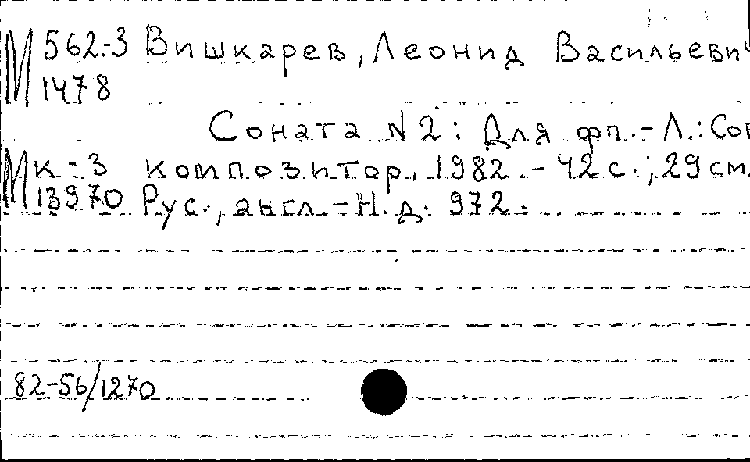 М 562-3 Вишкарев, Леонид Васильевич
1478
Соната N 2: Для фп. - Л.: Сов.
М к-3 композитор, 1982. - 42 с.; 29 см.
13970 Рус., англ. - Н. д. 972.
82-56/1270